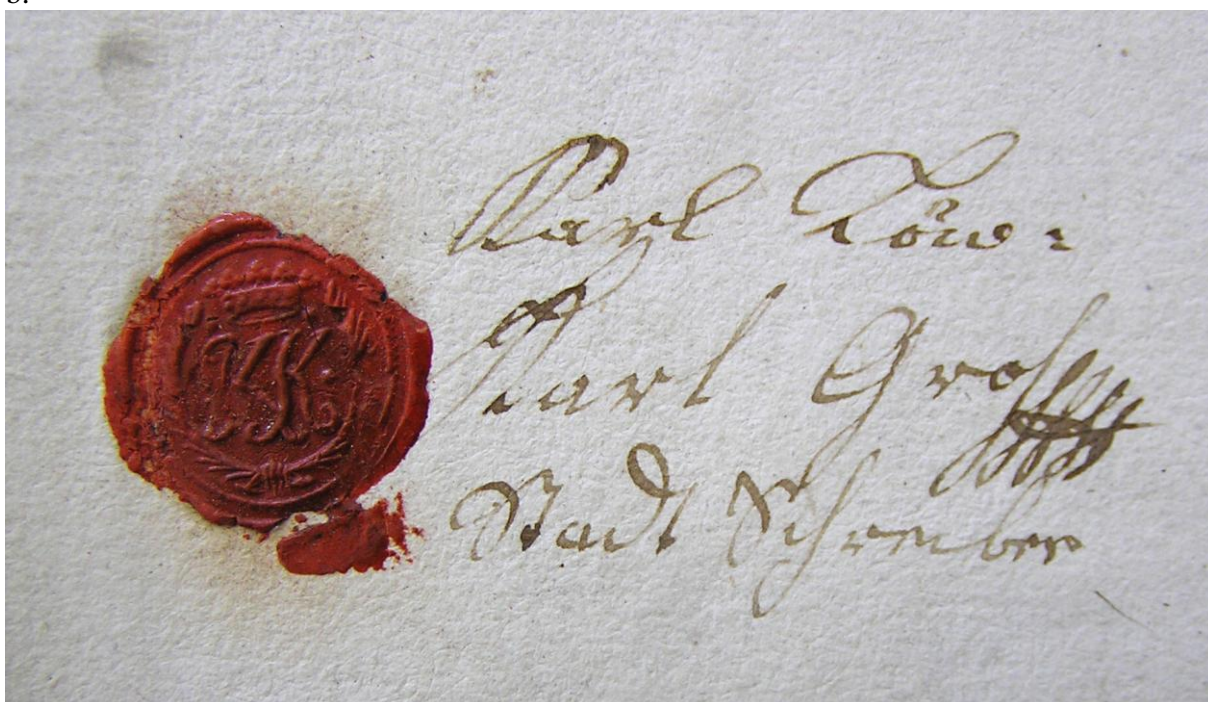 Karl Löw:
Karl Groß
Stadt Schreiber